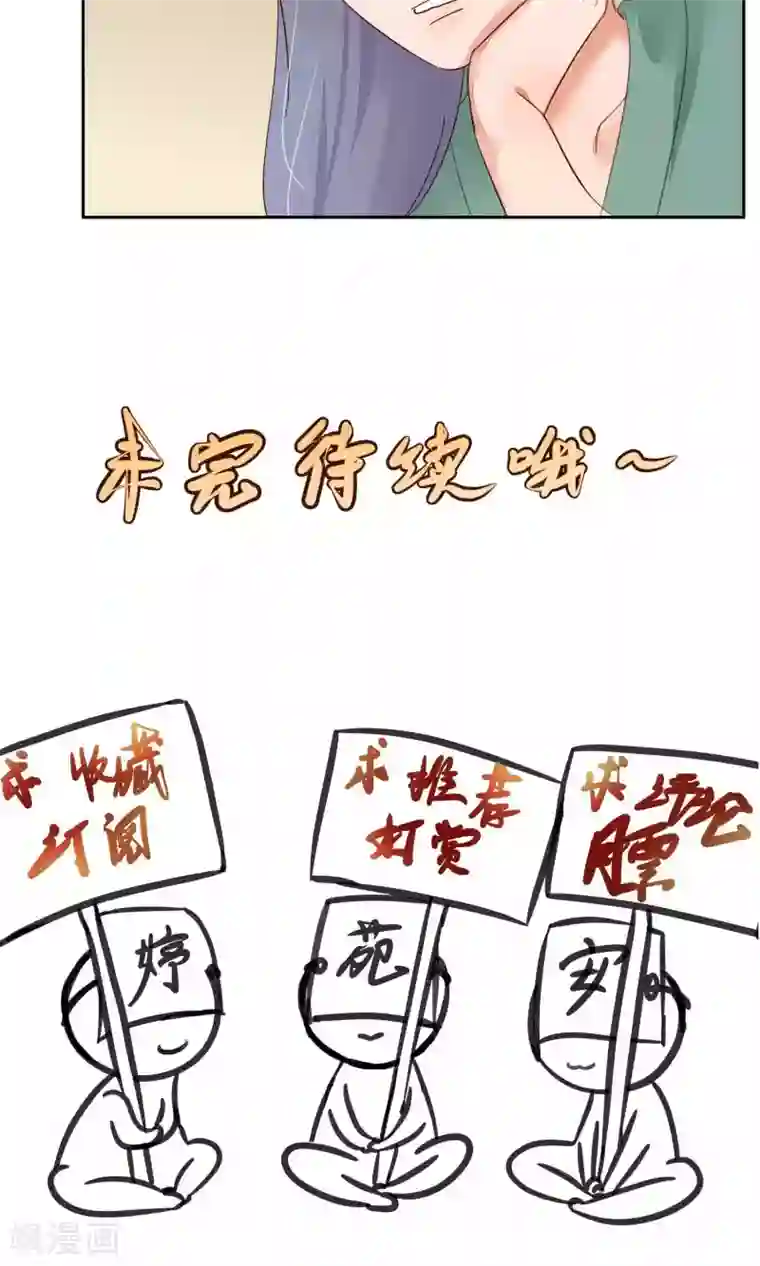 未完待续哦~
求收藏
订阅
求推荐
打赏
求评论
月票
婷
苑
安
飒漫画